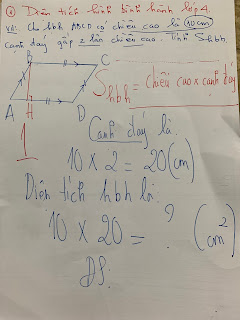 ① Diện tích hình bình hành lớp 4
VD: Cho hbh ABCD có chiều cao là 10cm
Cạnh đáy gấp 2 lần chiều cao. Tính Shbh
B C
A H D
Shbh = chiều cao x cạnh đáy
1
Cạnh đáy là:
10 x 2 = 20 (cm)
Diện tích hbh là:
10 x 20 = ? (cm²)
ĐS: